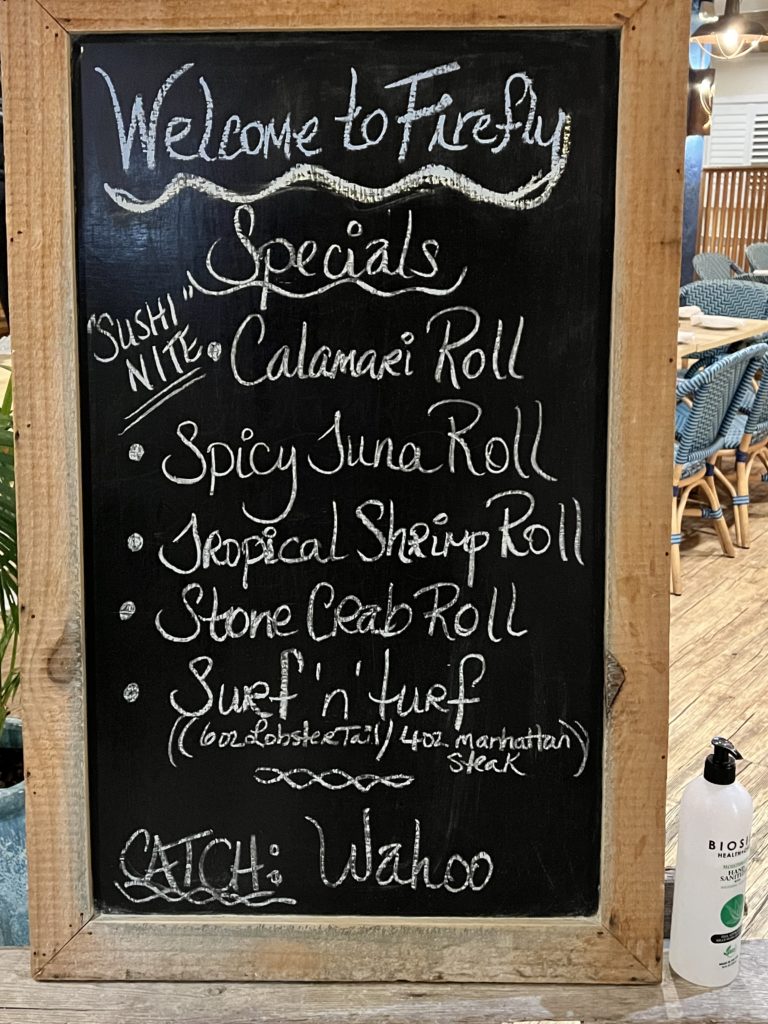 Welcome to Firefly
Specials
"SUSHI"
NITE
• Calamari Roll
• Spicy Tuna Roll
• Tropical Shrimp Roll
• Stone Crab Roll
• Surf 'n' turf
((6oz Lobster Tail/4oz manhattan
steak))
CATCH: Wahoo
BIOS
HEALTH
HAND